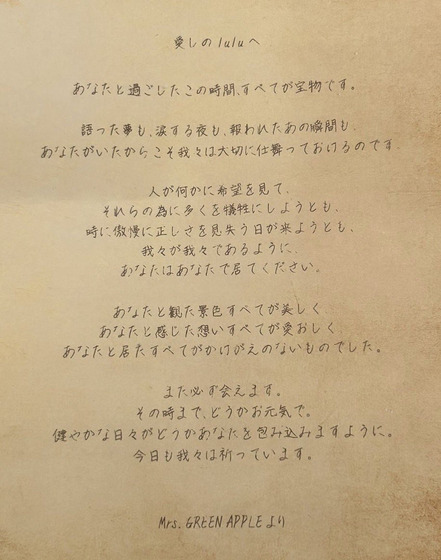 愛しのluluへ
あなたと過ごしたこの時間、すべてが宝物です。
語った夢も、涙する夜も、報われたあの瞬間も、
あなたがいたからこそ我々は大切に仕舞っておけるのです
人が何かに希望を見て、
それらの為に多くを犠牲にしようとも、
時に傲慢に正しさを見失う日が来ようとも、
我々が我々であるように、
あなたはあなたで居てください。
あなたと観た景色すべてが美しく
あなたと感じた想いすべてが愛おしく
あなたと居たすべてがかけがえのないものでした。
また必ず会えます。
その時まで、どうかお元気で。
健やかな日々がどうかあなたを包み込みますように。
今日も我々は祈っています。
Mrs. GREEN APPLEより